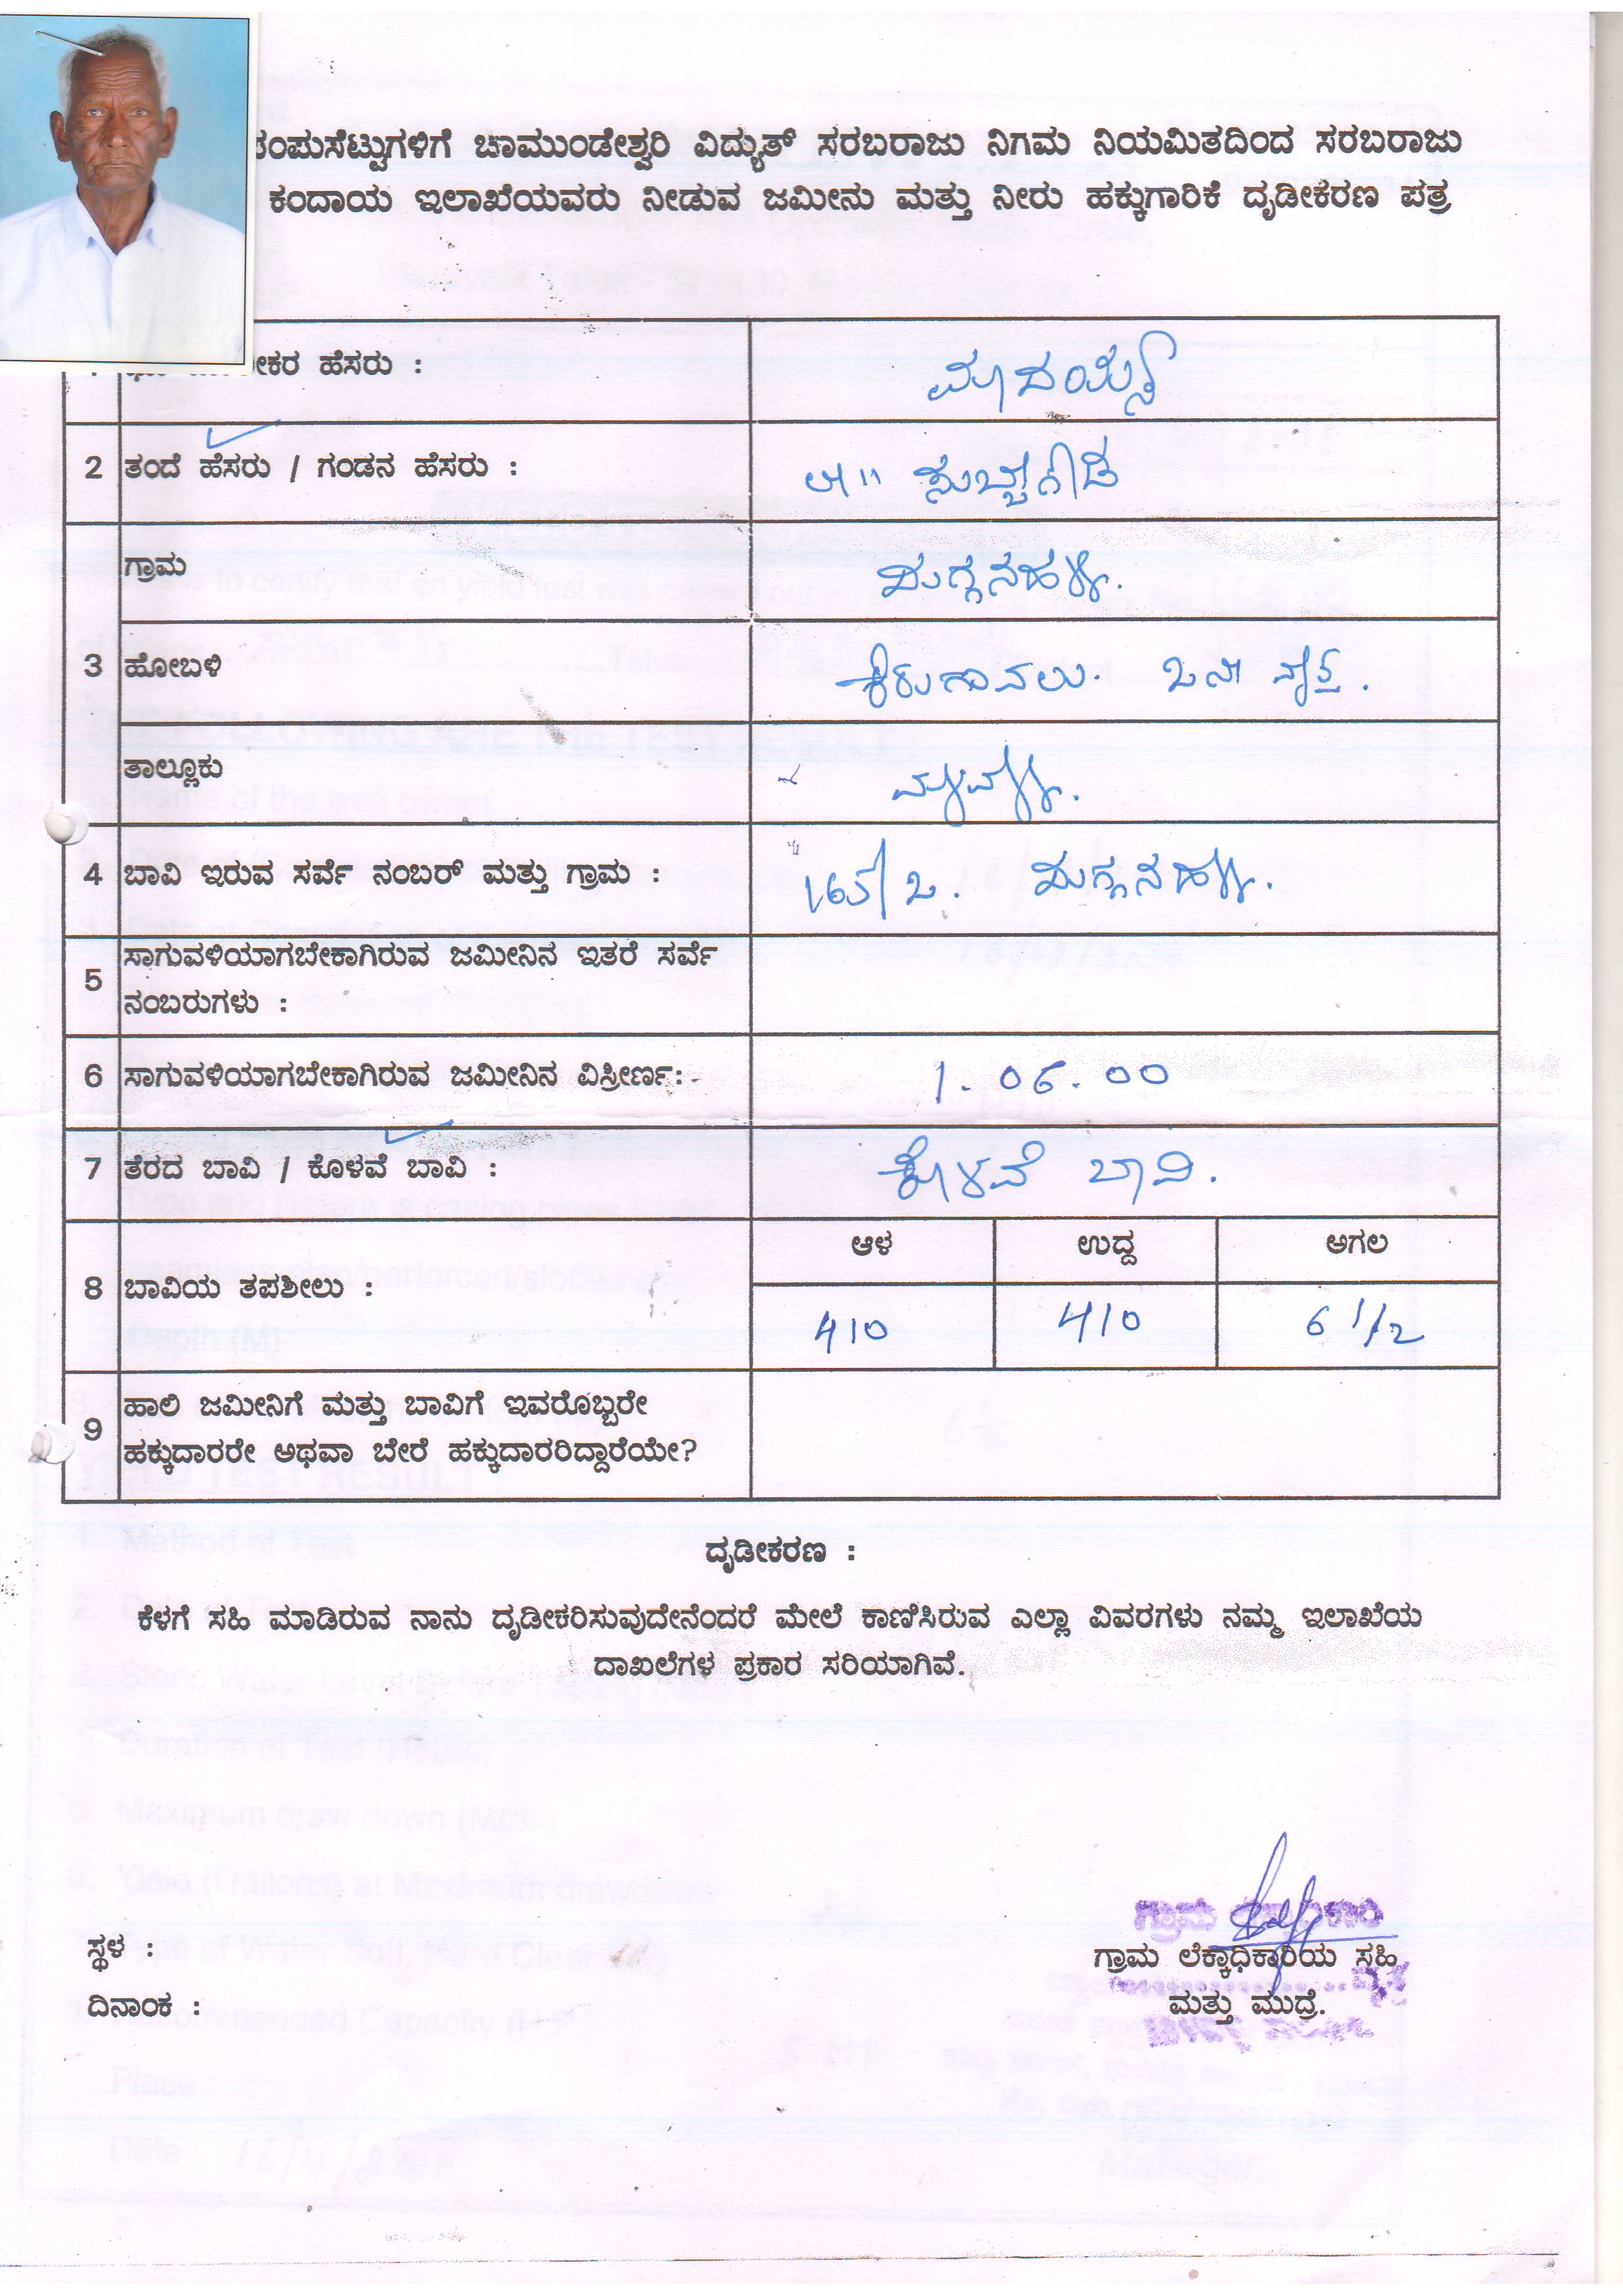 ಪಂಪುಸೆಟ್ಟುಗಳಿಗೆ ಚಾಮುಂಡೇಶ್ವರಿ ವಿದ್ಯುತ್ ಸರಬರಾಜು ನಿಗಮ ನಿಯಮಿತದಿಂದ ಸರಬರಾಜು
ಕಂದಾಯ ಇಲಾಖೆಯವರು ನೀಡುವ ಜಮೀನು ಮತ್ತು ನೀರು ಹಕ್ಕುಗಾರಿಕೆ ದೃಡೀಕರಣ ಪತ್ರ
ಹೆಸರು : ಮಾದಯ್ಯ
2 ತಂದೆ ಹೆಸರು / ಗಂಡನ ಹೆಸರು : ಸುಬ್ಬೇಗೌಡ
ಗ್ರಾಮ ಮಗ್ಗನಹಳ್ಳಿ.
3 ಹೋಬಳಿ ಕಿರುಗಾವಲು. ೨ನೇ ವೃತ್ತ.
ತಾಲ್ಲೂಕು ಮಳವಳ್ಳಿ.
4 ಬಾವಿ ಇರುವ ಸರ್ವೆ ನಂಬರ್ ಮತ್ತು ಗ್ರಾಮ : 165/೨. ಮಗ್ಗನಹಳ್ಳಿ.
5 ಸಾಗುವಳಿಯಾಗಬೇಕಾಗಿರುವ ಜಮೀನಿನ ಇತರೆ ಸರ್ವೆ
ನಂಬರುಗಳು :
6 ಸಾಗುವಳಿಯಾಗಬೇಕಾಗಿರುವ ಜಮೀನಿನ ವಿಸ್ತೀರ್ಣ:- 1-06-00
7 ತೆರದ ಬಾವಿ / ಕೊಳವೆ ಬಾವಿ : ಕೊಳವೆ ಬಾವಿ.
ಆಳ ಉದ್ದ ಅಗಲ
8 ಬಾವಿಯ ತಪಶೀಲು :
410 410 6 1/2
9 ಹಾಲಿ ಜಮೀನಿಗೆ ಮತ್ತು ಬಾವಿಗೆ ಇವರೊಬ್ಬರೇ
ಹಕ್ಕುದಾರರೇ ಅಥವಾ ಬೇರೆ ಹಕ್ಕುದಾರರಿದ್ದಾರೆಯೇ?
ದೃಡೀಕರಣ :
ಕೆಳಗೆ ಸಹಿ ಮಾಡಿರುವ ನಾನು ದೃಡೀಕರಿಸುವುದೇನೆಂದರೆ ಮೇಲೆ ಕಾಣಿಸಿರುವ ಎಲ್ಲಾ ವಿವರಗಳು ನಮ್ಮ ಇಲಾಖೆಯ
ದಾಖಲೆಗಳ ಪ್ರಕಾರ ಸರಿಯಾಗಿವೆ.
ಸ್ಥಳ :
ದಿನಾಂಕ :
ಗ್ರಾಮ ಲೆಕ್ಕಾಧಿಕಾರಿಯ ಸಹಿ
ಮತ್ತು ಮುದ್ರೆ.